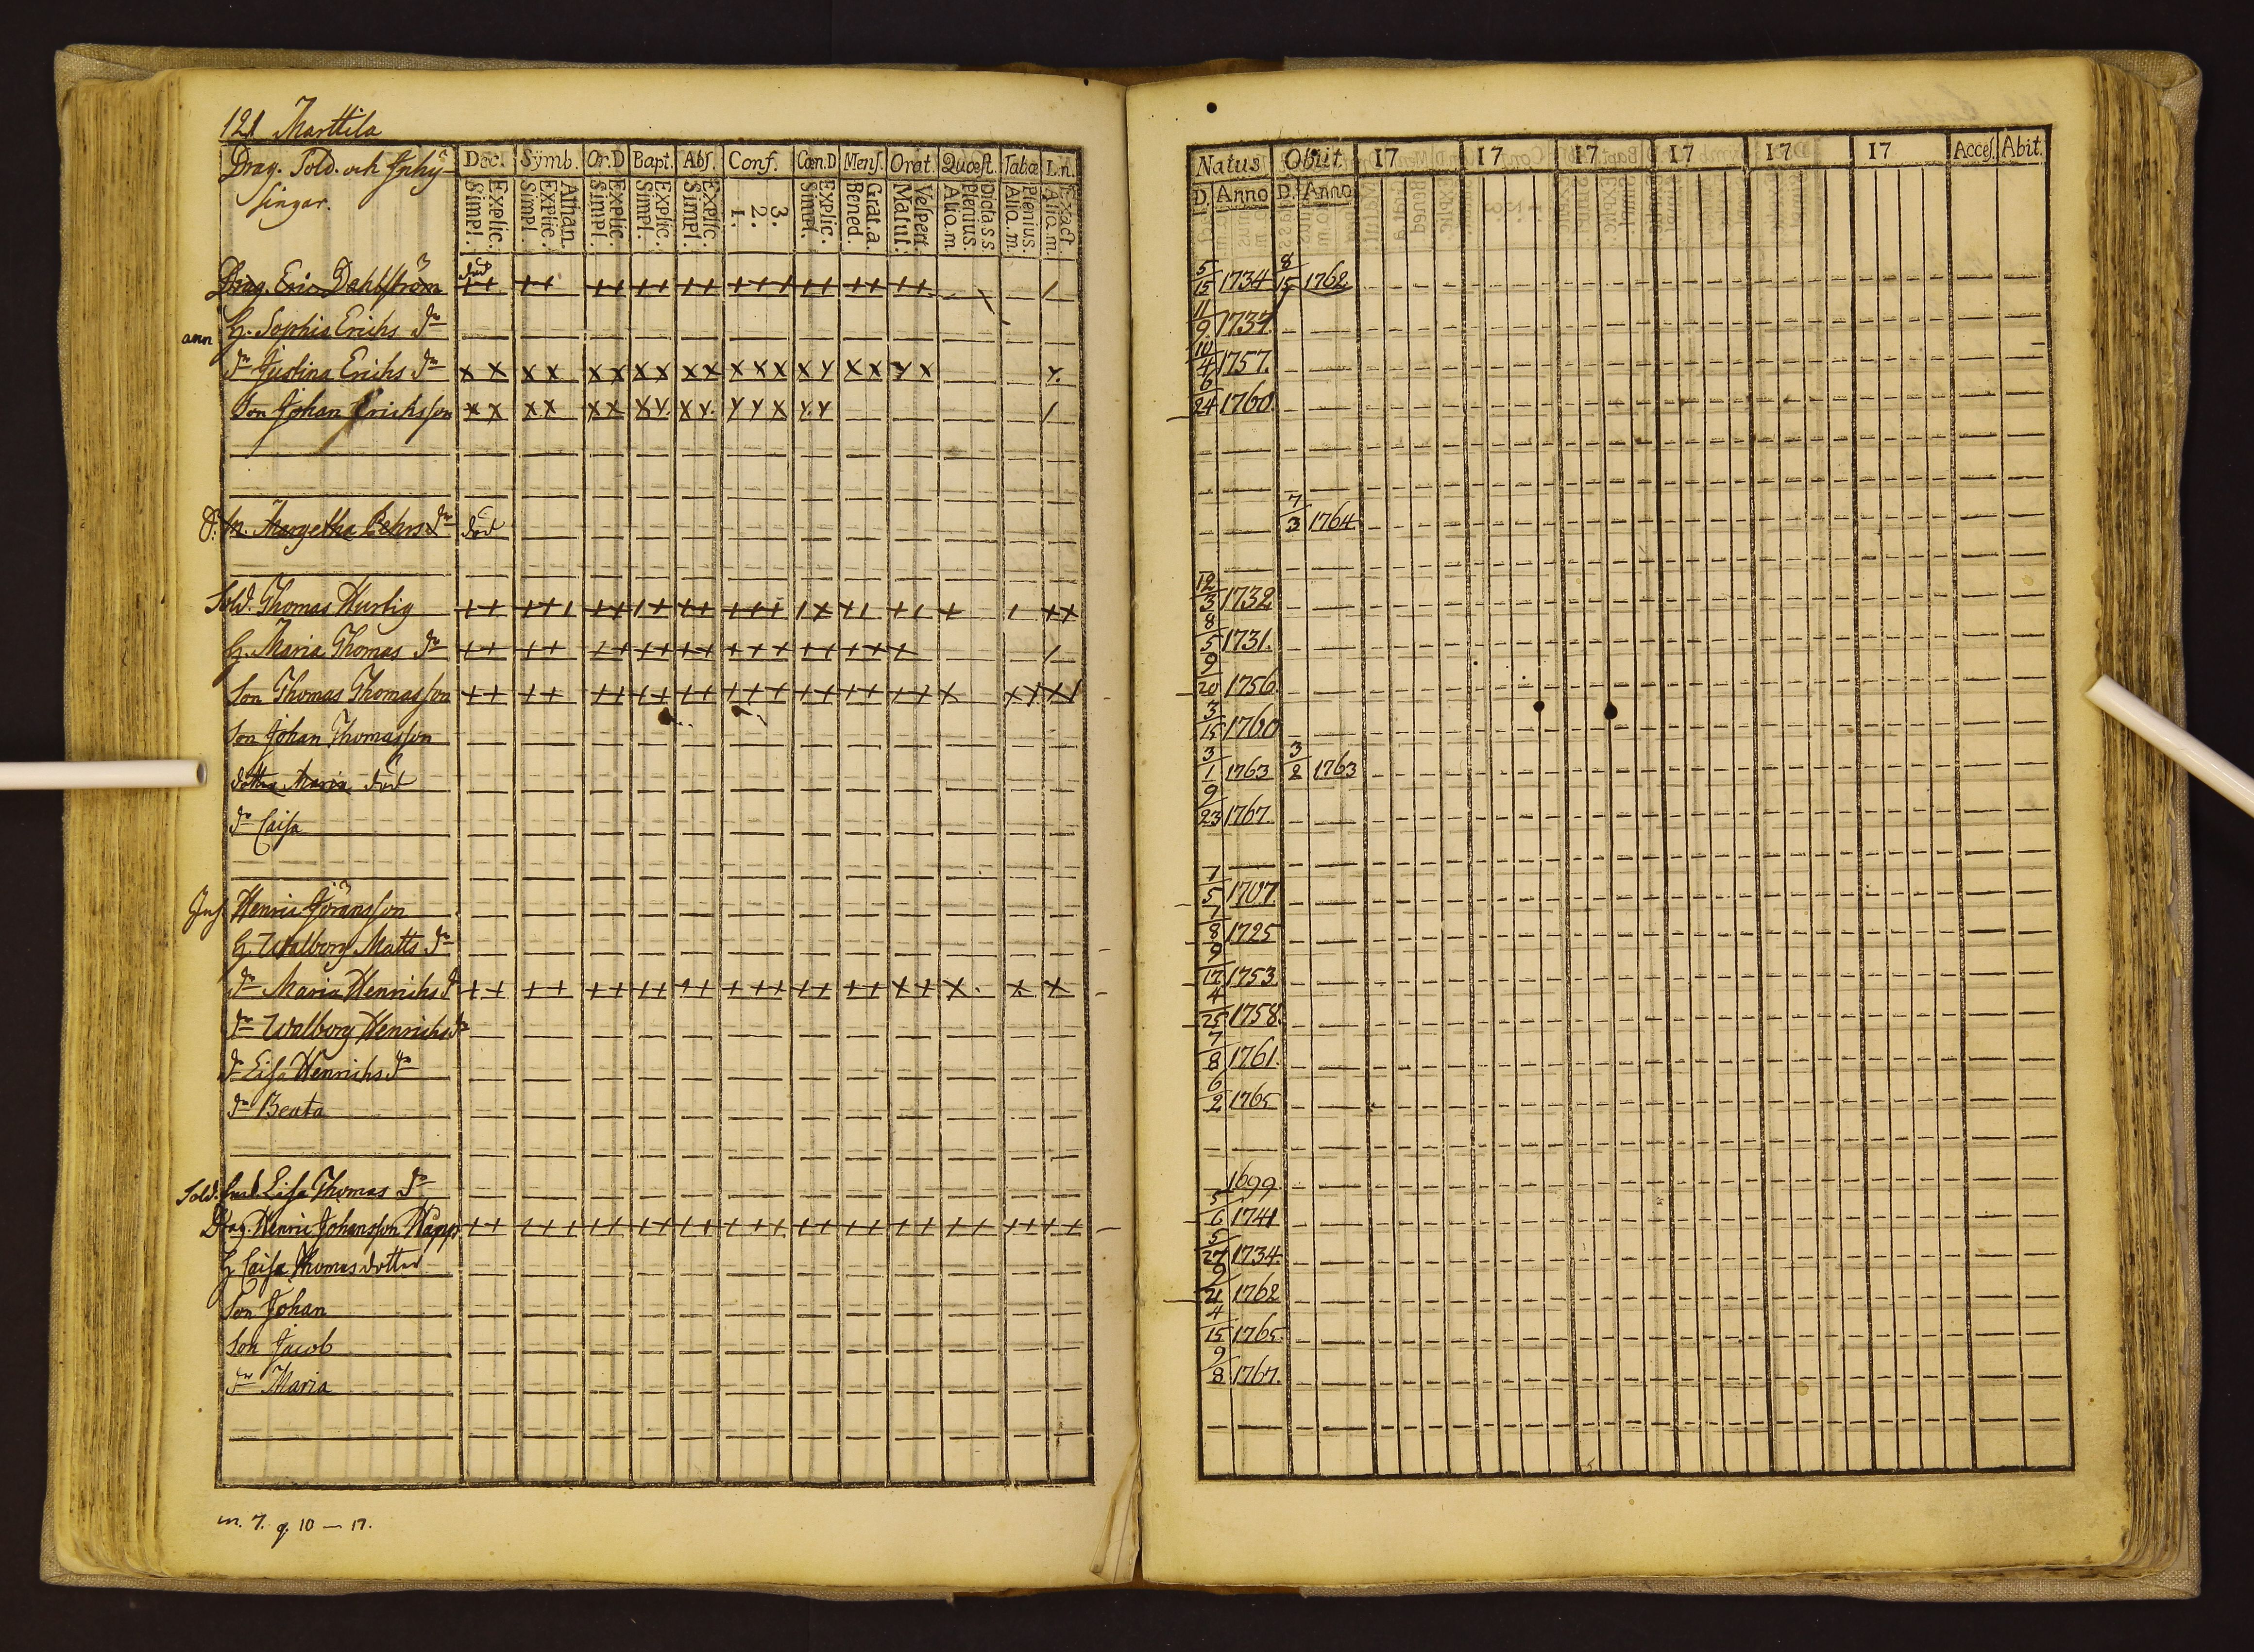 121 Marttila
Drag. Sold. och Inhy-
singar.
Dec. Symb. Or.D Bapt. Abs. Conf. Cœn.D Mens. Orat. Quœst. Tabœ L.n.
Explic. Simpl. Athan. Explic. Simpl. Explic. Simpl. Explic. Simpl. Explic. Simpl. 3. 2. 1. Explic. Simpl. Grat.a. Bened. Vespert. Matut. Dicta s s Plenius. Aliq.m. Plenius. Aliq.m. Exact Aliq.m.
Natus Obiit. 17 17 17 17 17 17 Acces. Abit.
D. Anno D. Anno
Drag. Eric Dahlström död 5/15 1734 8/15 1762
ann H. Sophia Erichs dr 11/9 1737.
dr Justina Erichs dr 10/4 1757.
Son Johan Erichsson 6/24 1760.
död 7/3 1764
Sold. Thomas Hurtig 12/3 1732
H. Maria Thomas dr 8/5 1731.
Son Thomas Thomasson 9/20 1756.
Son Johan Thomasson 3/15 1760
dotter Maria död 3/1 1763 3/2 1763
dr Caisa 9/23 1767.
Inh. Henric Göransson 7/5 1707.
H. Walborg Matts dr 7/8 1725
dr Maria Henrichs dr 9/17 1753
dr Walborg Henrichs dr 4/25 1758.
dr Lisa Henrichs dr 7/8 1761.
dr Beata 6/2 1765
Sold. Lisa Thomas dr 1699
Drag. Henric Johansson 5/6 1741
H Caisa Thomasdotter 5/27 1734.
Son Johan 9/21 1762
Son Jacob 4/15 1765
dr Maria 9/8 1767.
m. 7. q. 10 — 17.